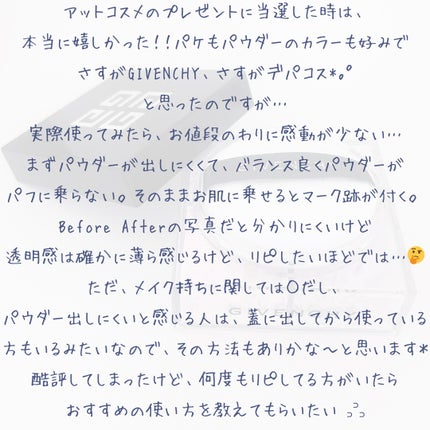 アットコスメのプレゼントに当選した時は、
本当に嬉しかった!!パケもパウダーのカラーも好みで
さすがGIVENCHY、さすがデパコス*｡ﾟ
と思ったのですが…
実際使ってみたら、お値段のわりに感動が少ない…
まずパウダーが出しにくくて、バランス良くパウダーが
パフに乗らない。そのままお肌に乗せるとマーク跡が付く。
Before Afterの写真だと分かりにくいけど
透明感は確かに薄ら感じるけど、リピしたいほどでは…🤔
ただ、メイク持ちに関しては〇だし、
パウダー出しにくいと感じる人は、蓋に出してから使っている
方もいるみたいなので、その方法もありかな〜と思います*
酷評してしまったけど、何度もリピしてる方がいたら
おすすめの使い方を教えてもらいたい
GIVENCHY